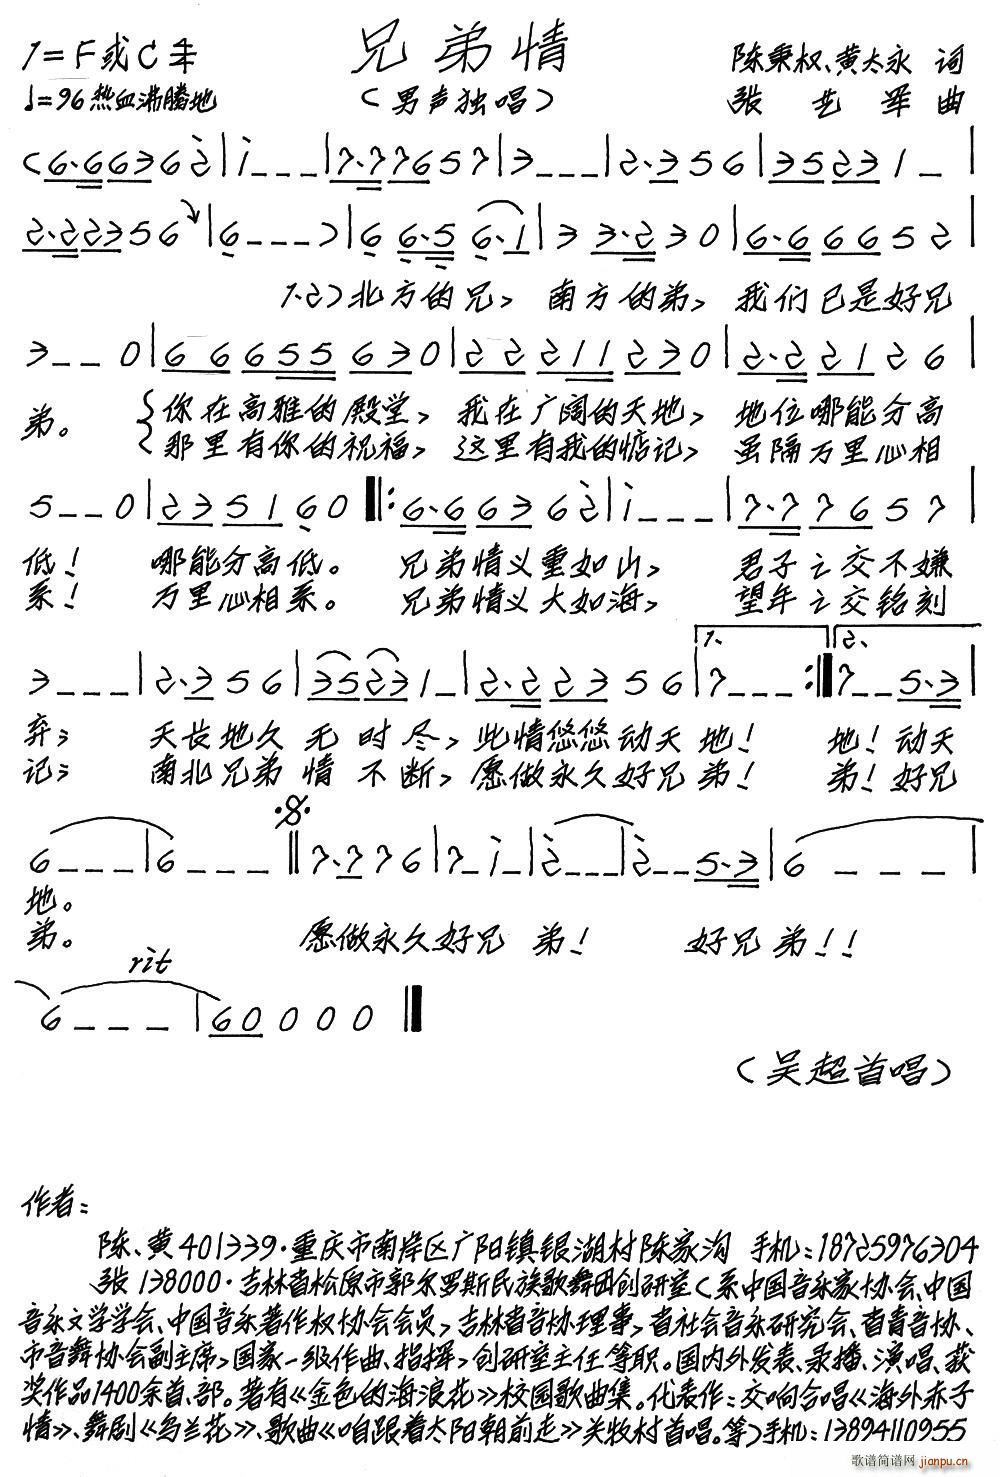 兄弟情
1=F或C 4/4
♩=96 热血沸腾地
(男声独唱)
陈秉权、黄太永 词
张艺军 曲
(6·6 6 3 6 2̇ | i - - - | 7·7 7 6 5 7 | 3 - - - | 2·3 5 6 | 3 5 2 3 1 - |
2·2 2 3 5 6 | 6 - - -) | 6 6·5 6·1 | 3 3·2 3 0 | 6·6 6 6 5 2 |
1、2)北方的兄, 南方的弟, 我们已是好兄
3 - - 0 | 6 6 6 5 5 6 3 0 | 2 2 2 1 1 2 3 0 | 2·2 2 1 2 6 |
弟。 你在高雅的殿堂, 我在广阔的天地, 地位哪能分高
那里有你的祝福, 这里有我的惦记, 虽隔万里心相
5 - - 0 | 2 3 5 1 6 0 ‖: 6·6 6 3 6 2̇ | i - - - | 7·7 7 6 5 7 |
低! 哪能分高低。 兄弟情义重如山, 君子之交不嫌
系! 万里心相系。 兄弟情义大如海, 望年之交铭刻
1、 2、
3 - - - | 2·3 5 6 | 3 5 2 3 1 - | 2·2 2 3 5 6 | 7 - - - :‖ 7 - - 5·3 |
弃; 天长地久无时尽, 此情悠悠动天地! 地!动天
记; 南北兄弟情不断, 愿做永久好兄弟! 弟!好兄
6 - - - | 6 - - - ‖ 7·7 7 6 | 7 - i - | 2̇ - - - | 2̇ - - 5·3 | 6 - - -
地。
弟。 愿做永久好兄弟! 好兄弟!!
rit
6 - - - | 6 0 0 0 0 ‖
(吴超首唱)
作者:
陈、黄401339·重庆市南岸区广阳镇银湖村陈家沟 手机:18725976304
张138000·吉林省松原市郭尔罗斯民族歌舞团创研室(系中国音乐家协会、中国
音乐文学学会、中国音乐著作权协会会员,吉林省音协理事,省社会音乐研究会、省青音协、
市音舞协会副主席,国家一级作曲、指挥,创研室主任等职。国内外发表、录播、演唱、获
奖作品1400余首、部。著有《金色的海浪花》校园歌曲集。代表作:交响合唱《海外赤子
情》、舞剧《乌兰花》、歌曲《咱跟着太阳朝前走》关牧村首唱。等)手机:13894110955
歌谱简谱网 jianpu.cn